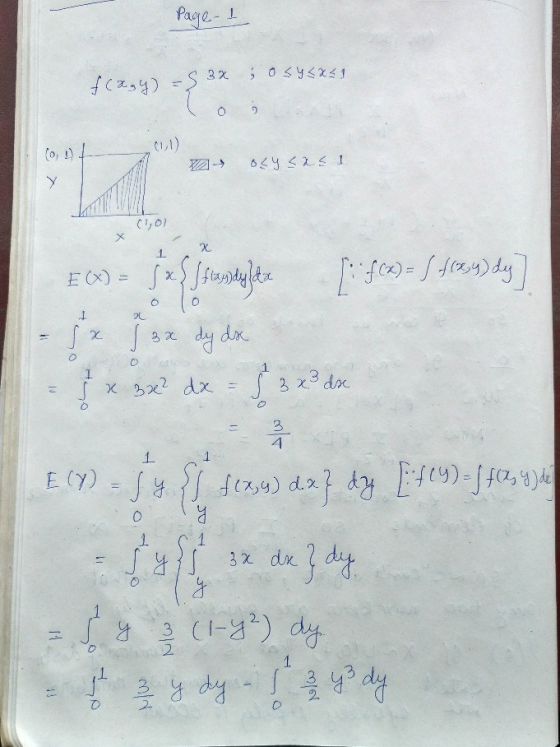 Page - 1
f(x,y) = { 3x ; 0 ≤ y ≤ x ≤ 1
0 ;
(0,1) (1,1)
→ 0 ≤ y ≤ x ≤ 1
Y
(1,0)
X
E(X) = ∫₀¹ x { ∫₀ˣ f(x,y) dy } dx [∵ f(x) = ∫ f(x,y) dy]
= ∫₀¹ x ∫₀ˣ 3x dy dx
= ∫₀¹ x 3x² dx = ∫₀¹ 3x³ dx
= 3/4
E(Y) = ∫₀¹ y { ∫_y¹ f(x,y) dx } dy [∵ f(y) = ∫ f(x,y) dx]
= ∫₀¹ y { ∫_y¹ 3x dx } dy
= ∫₀¹ y 3/2 (1-y²) dy
= ∫₀¹ 3/2 y dy - ∫₀¹ 3/2 y³ dy